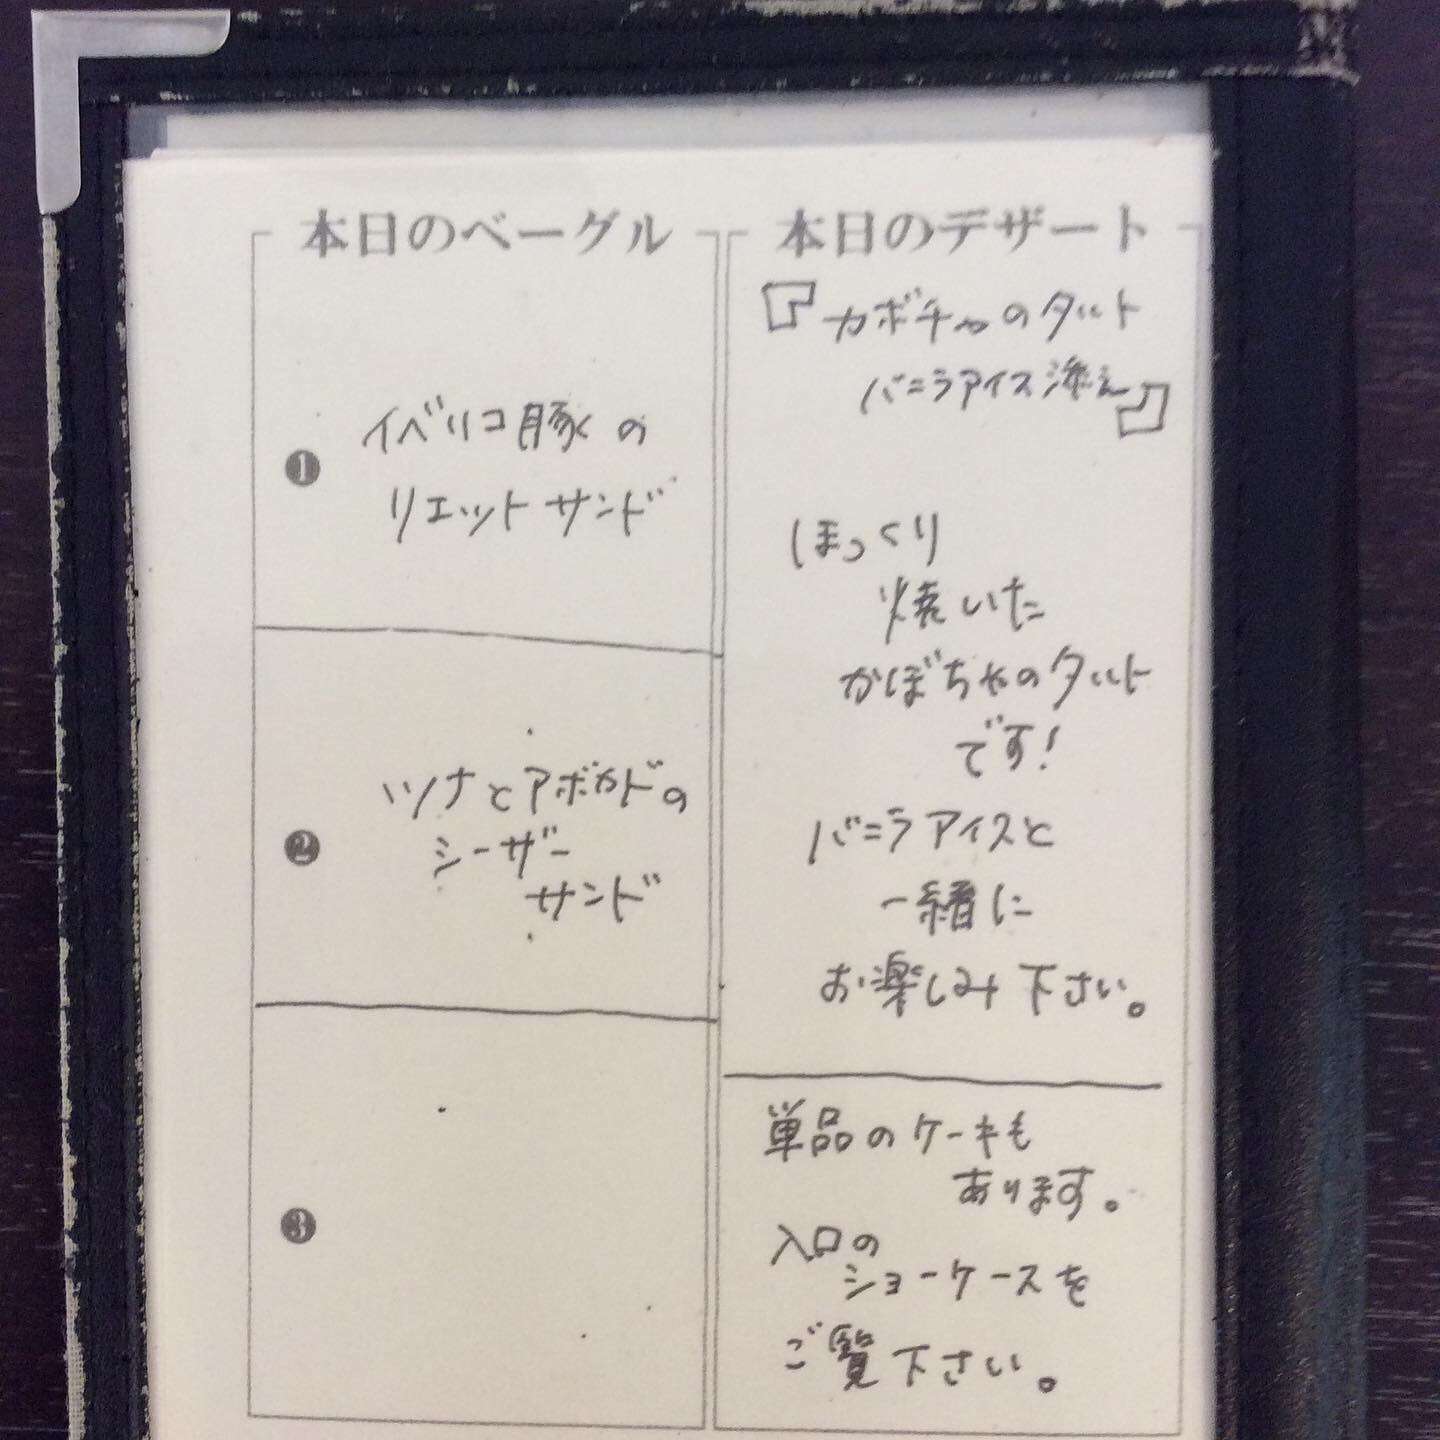 本日のベーグル
❶
イベリコ豚の
リエットサンド
❷
ツナとアボカドの
シーザー
サンド
❸
本日のデザート
『カボチャのタルト
バニラアイス添え』
ほっくり
焼いた
かぼちゃのタルト
です!
バニラアイスと
一緒に
お楽しみ下さい。
単品のケーキも
あります。
入口の
ショーケースを
ご覧下さい。